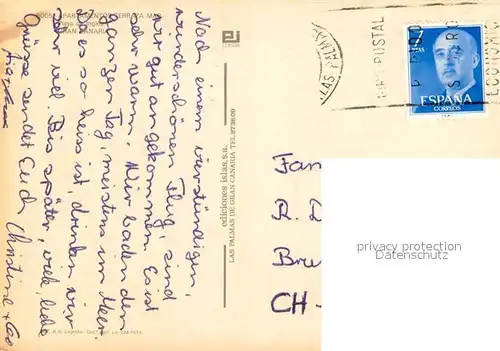 Nach einem vierstündigen,
wunderschönen Flug, sind
wir gut angekommen. Es ist
sehr warm. Wir baden den
ganzen Tag, meistens im Meer.
Da es so heiss ist trinken wir
sehr viel. Bis später, viele liebe
Grüsse sendet Euch Christine + Co
APARTAMENTOS TERRAZA MAR
GRAN CANARIA
ediciones islas, s.a.
LAS PALMAS DE GRAN CANARIA TEL. 273609
LAS PALMAS
POSTAL
ECONOMI
PTAS
ESPAÑA
CORREOS
Fam
R. D
Bru
CH -
privacy protection
oldthing.com